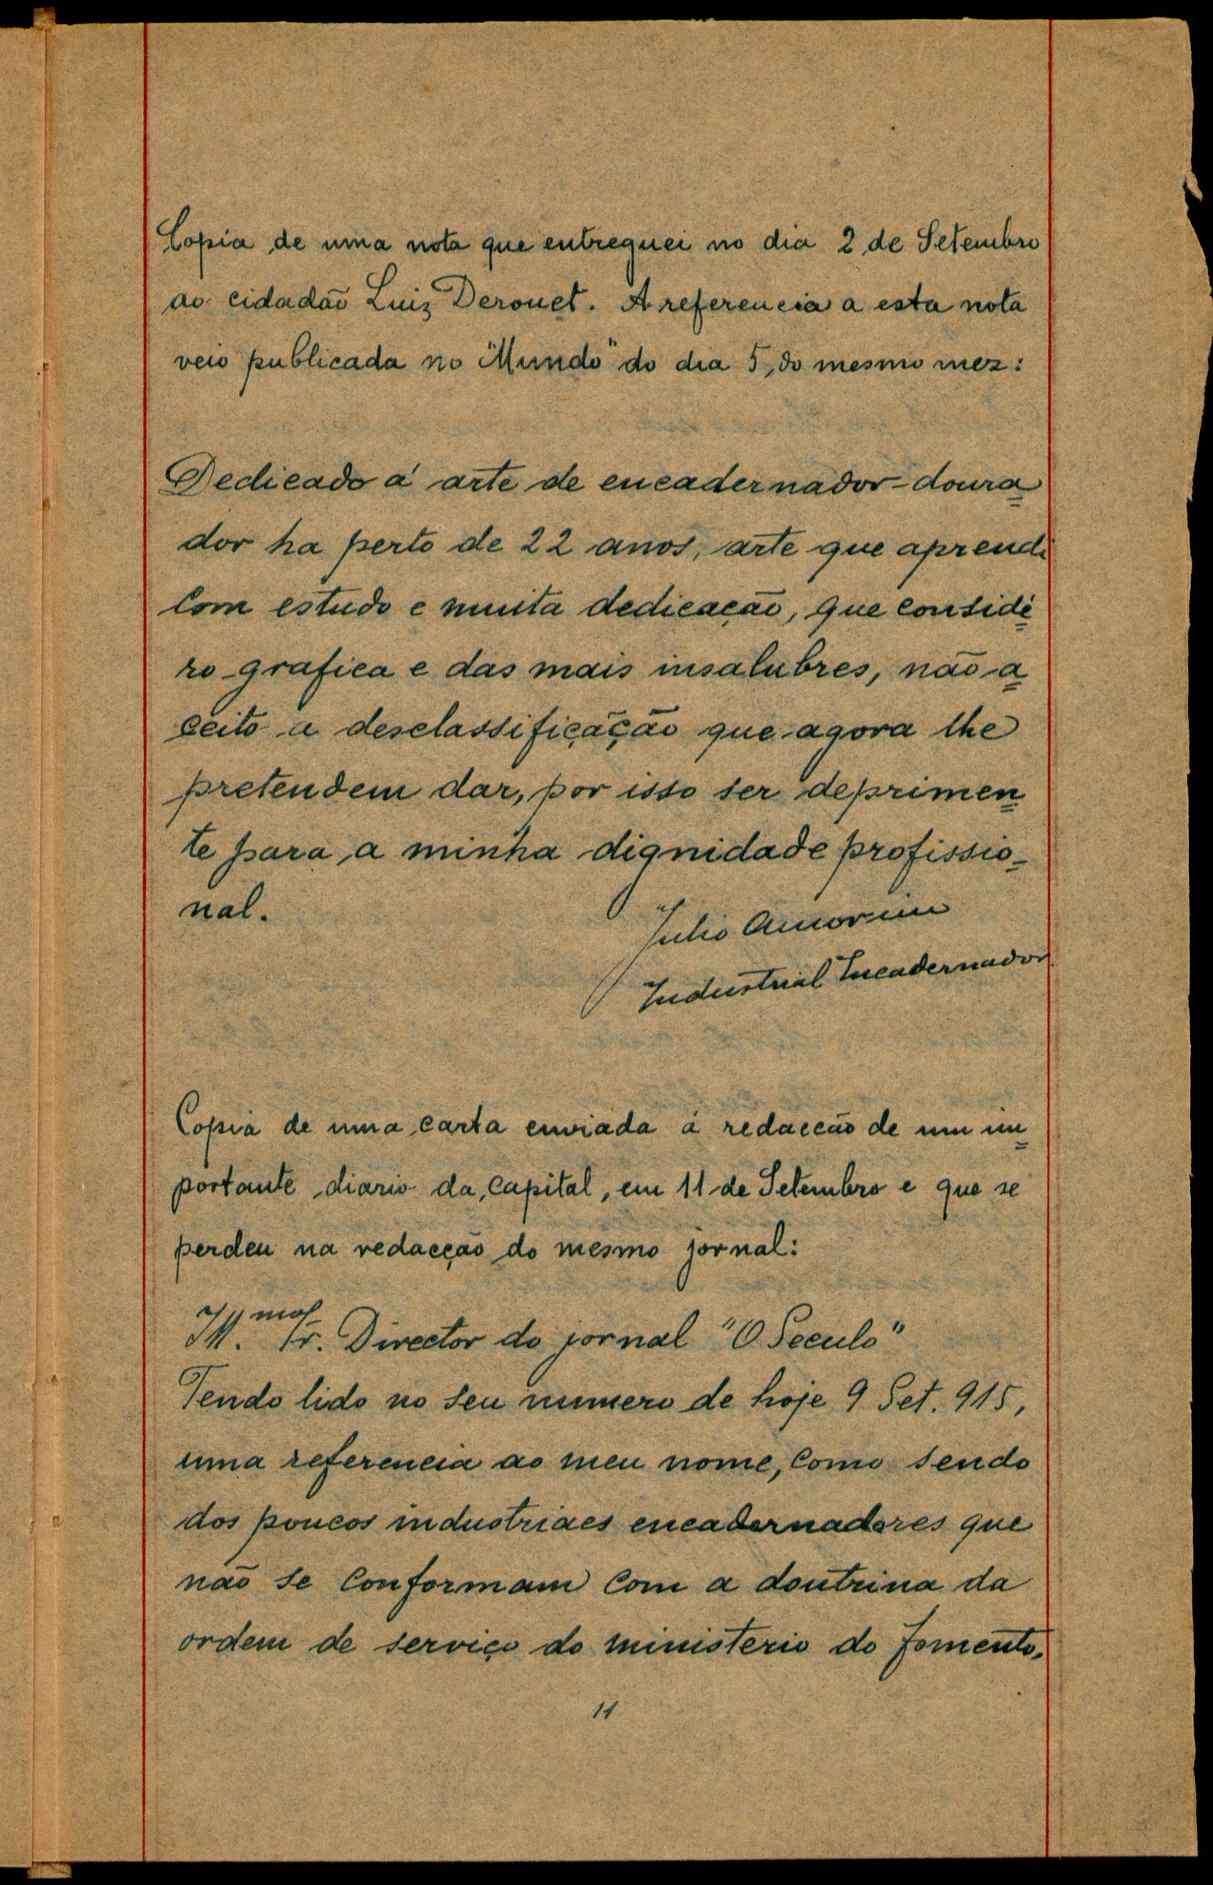 Copia de uma nota que entreguei no dia 2 de Setembro
ao cidadão Luiz Derouet. A referencia a esta nota
veio publicada no "Mundo" do dia 5, do mesmo mez:
Dedicado á arte de encadernador-doura
dor ha perto de 22 anos, arte que aprendi
com estudo e muita dedicação, que conside
ro grafica e das mais insalubres, não a
ceito a desclassificação que agora lhe
pretendem dar, por isso ser deprimen
te para a minha dignidade profissio-
nal.
Julio Amorim
Industrial Encadernador
Copia de uma carta enviada á redacção de um im
portante diario da capital, em 11 de Setembro e que se
perdeu na redacção do mesmo jornal:
Ill.mo Sr. Director do jornal "O Seculo"
Tendo lido no seu numero de hoje 9 Set. 915,
uma referencia ao meu nome, como sendo
dos poucos industriaes encadernadores que
não se conformam com a doutrina da
ordem de serviço do ministerio do fomento,
11